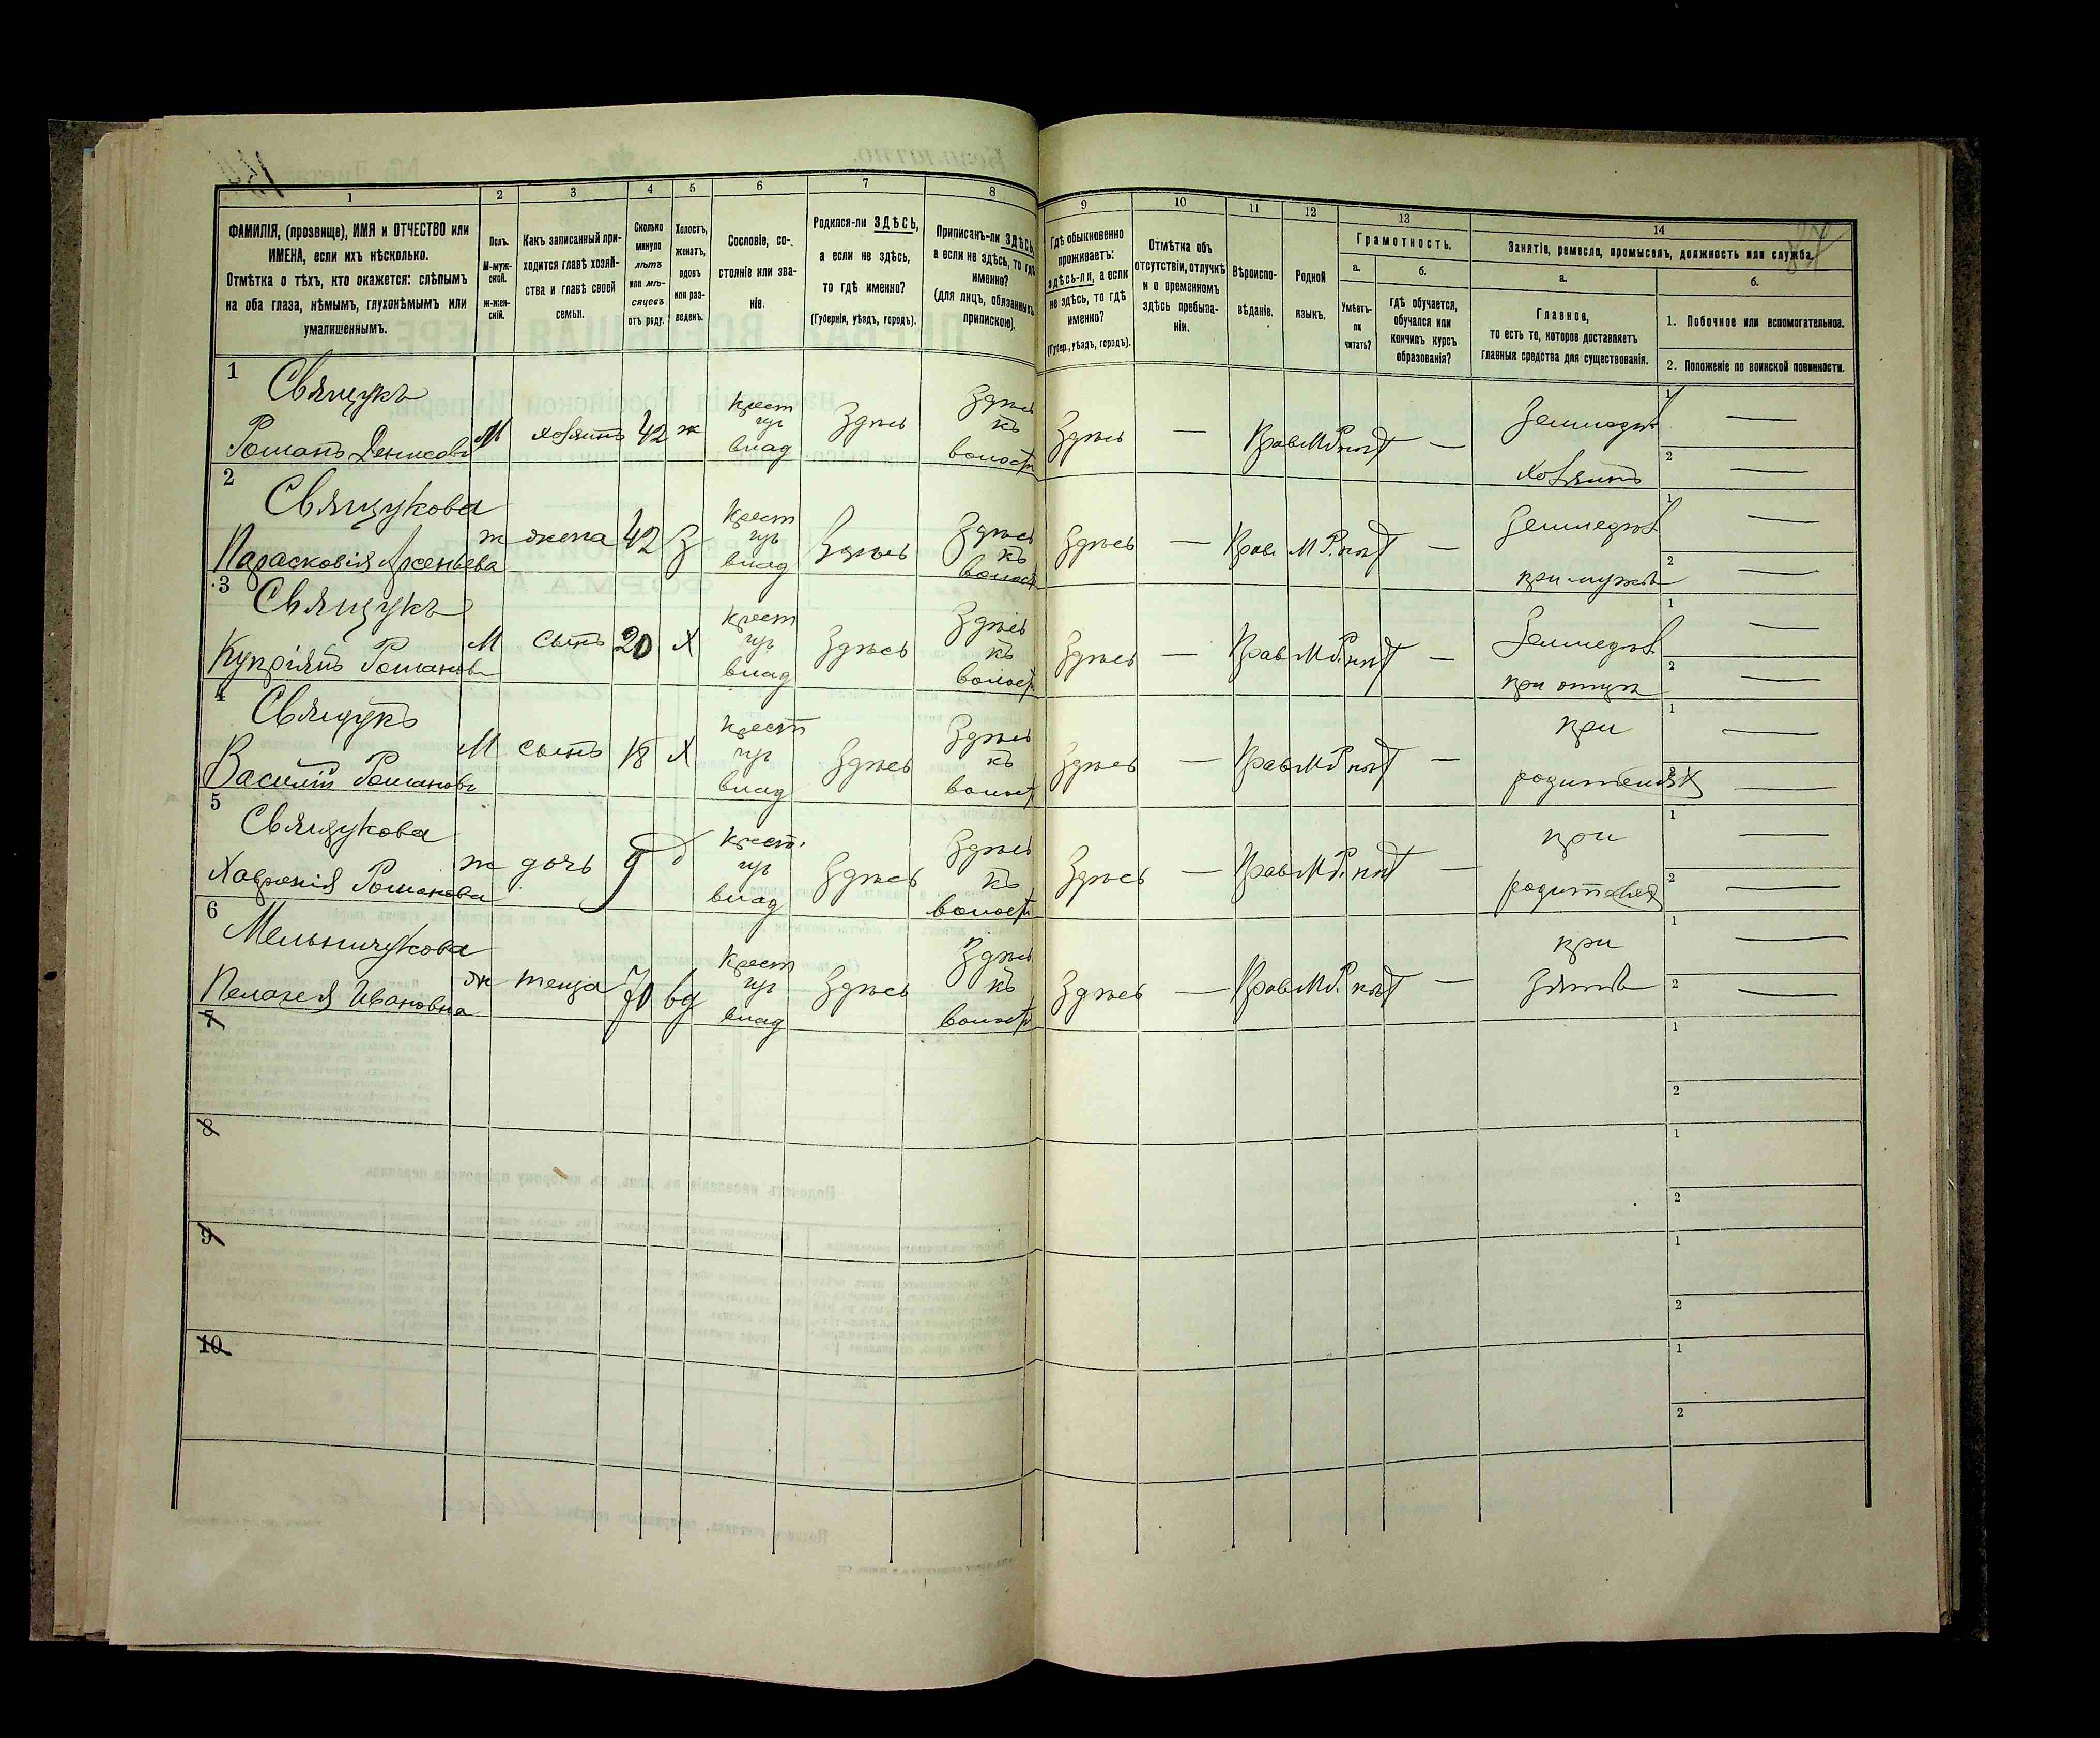 87
1 2 3 4 5 6 7 8 9 10 11 12 13 14
ФАМИЛІЯ, (прозвище), ИМЯ и ОТЧЕСТВО или
ИМЕНА, если ихъ нѣсколько.
Отмѣтка о тѣхъ, кто окажется: слѣпымъ
на оба глаза, нѣмымъ, глухонѣмымъ или
умалишеннымъ.
Полъ.
М-муж-
ской.
ж-жен-
скій.
Какъ записанный при-
ходится главѣ хозяй-
ства и главѣ своей
семьи.
Сколько
минуло
лѣтъ
или мѣ-
сяцевъ
отъ роду.
Холостъ,
женатъ,
вдовъ
или раз-
веденъ.
Сословіе, со-
стояніе или зва-
ніе.
Родился-ли ЗДѢСЬ,
а если не здѣсь,
то гдѣ именно?
(Губернія, уѣздъ, городъ).
Приписанъ-ли ЗДѢСЬ,
а если не здѣсь, то гдѣ
именно?
(для лицъ, обязанныхъ
припискою).
Гдѣ обыкновенно
проживаетъ:
здѣсь-ли, а если
не здѣсь, то гдѣ
именно?
(Губер., уѣздъ, городъ).
Отмѣтка объ
отсутствіи, отлучкѣ
и о временномъ
здѣсь пребыва-
ніи.
Вѣроиспо-
вѣданіе.
Родной
языкъ.
Грамотность.
а.
Умѣетъ-
ли
читать?
б.
гдѣ обучается,
обучался или
кончилъ курсъ
образованія?
Занятіе, ремесло, промыселъ, должность или служба.
а.
Главное,
то есть то, которое доставляетъ
главныя средства для существованія.
б.
1. Побочное или вспомогательное.
2. Положеніе по воинской повинности.
1
Свящукъ
Романъ Денисовъ М хозяинъ 42 ж Крест влад Здѣсь Здѣсь къ волости Здѣсь — Прав М.Р. нѣт — Земледѣл 1 —
хозяинъ 2 —
2
Свящукова
Парасковія Арсеньева ж жена 42 З Крест влад Здѣсь Здѣсь къ волости Здѣсь — Прав. М.Р. нѣт — Земледѣл 1 —
при мужѣ 2 —
3
Свящукъ
Купріянъ Романовъ М сынъ 20 Х Крест влад Здѣсь Здѣсь къ волости Здѣсь — Прав М.Р. нѣт — Земледѣл 1 —
при отцѣ 2 —
4
Свящукъ
Василій Романовъ М сынъ 18 Х Крест влад Здѣсь Здѣсь къ волости Здѣсь — Прав М.Р. нѣт — при 1 —
родителях 2 —
5
Свящукова
Хавронія Романова ж дочь 9 д Крест. влад Здѣсь Здѣсь къ волости Здѣсь — Прав М.Р. нѣт — при 1 —
родителях 2 —
6
Мельничукова
Пелагея Ивановна ж теща 70 вд Крест влад Здѣсь Здѣсь къ волости Здѣсь — Прав М.Р. нѣт — при 1 —
зятѣ 2 —
7 1
2
8 1
2
9 1
2
10 1
2